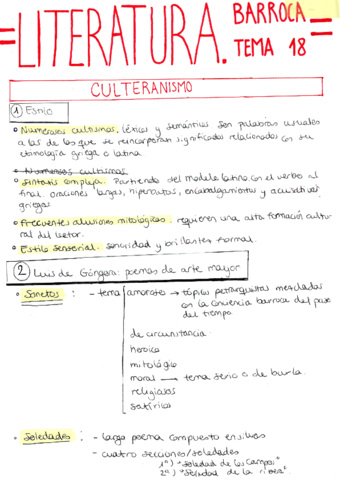 =LITERATURA. BARROCA=
TEMA 18
CULTERANISMO
① Estilo
• Numerosos cultismos, léxicos y semánticos son palabras usuales
a las de los que se reincorporan significados relacionados con su
etimología griega o latina.
• Numerosos cultismos
• Sintaxis compleja. Partiendo del modelo latino con el verbo al
final. oraciones largas, hipérbatos, encabalgamientos y acusativos
griegos
• Frecuentes alusiones mitológicas: requieren una alta formación cultu-
ral del lector.
• Estilo sensorial. sonoridad y brillantez formal.
② Luis de Góngora: poemas de arte mayor
• Sonetos : - tema amoroso → tópicos petrarquistas mezclados
con la conciencia barroca del paso
del tiempo
de circunstancia
heroico
mitológico
moral → tema serio o de burla.
religiosos
satírico
• Soledades : - largo poema compuesto en silvas
- cuatro secciones/soledades
1ª) "soledad de los campos"
2ª) "soledad de la ribera"